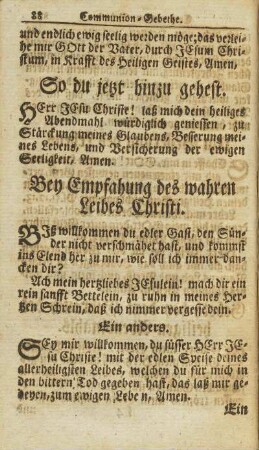 88 Communion-Gebethe.
und endlich ewig seelig werden möge; das verlei-
he mir GOtt der Vater, durch JEsum Chri-
stum, in Krafft des Heiligen Geistes, Amen.
So du jetzt hinzu gehest.
HErr JEsu Christe! laß mich dein heiliges
Abendmahl würdiglich geniessen, zu
Stärckung meines Glaubens, Besserung mei-
nes Lebens, und Versicherung der ewigen
Seeligkeit, Amen.
Bey Empfahung des wahren
Leibes Christi.
BIß willkommen du edler Gast, den Sün-
der nicht verschmähet hast, und kommst
ins Elend her zu mir, wie soll ich immer dan-
cken dir?
Ach mein hertzliebes JEsulein! mach dir ein
rein sanfft Bettelein, zu ruhn in meines Her-
tzen Schrein, daß ich nimmer vergesse dein.
Ein anders.
SEy mir willkommen, du süsser HErr JE-
su Christe! mit der edlen Speise deines
allerheiligsten Leibes, welchen du für mich in
den bittern Tod gegeben hast, das laß mir ge-
deyen, zum ewigen Leben, Amen.
Ein